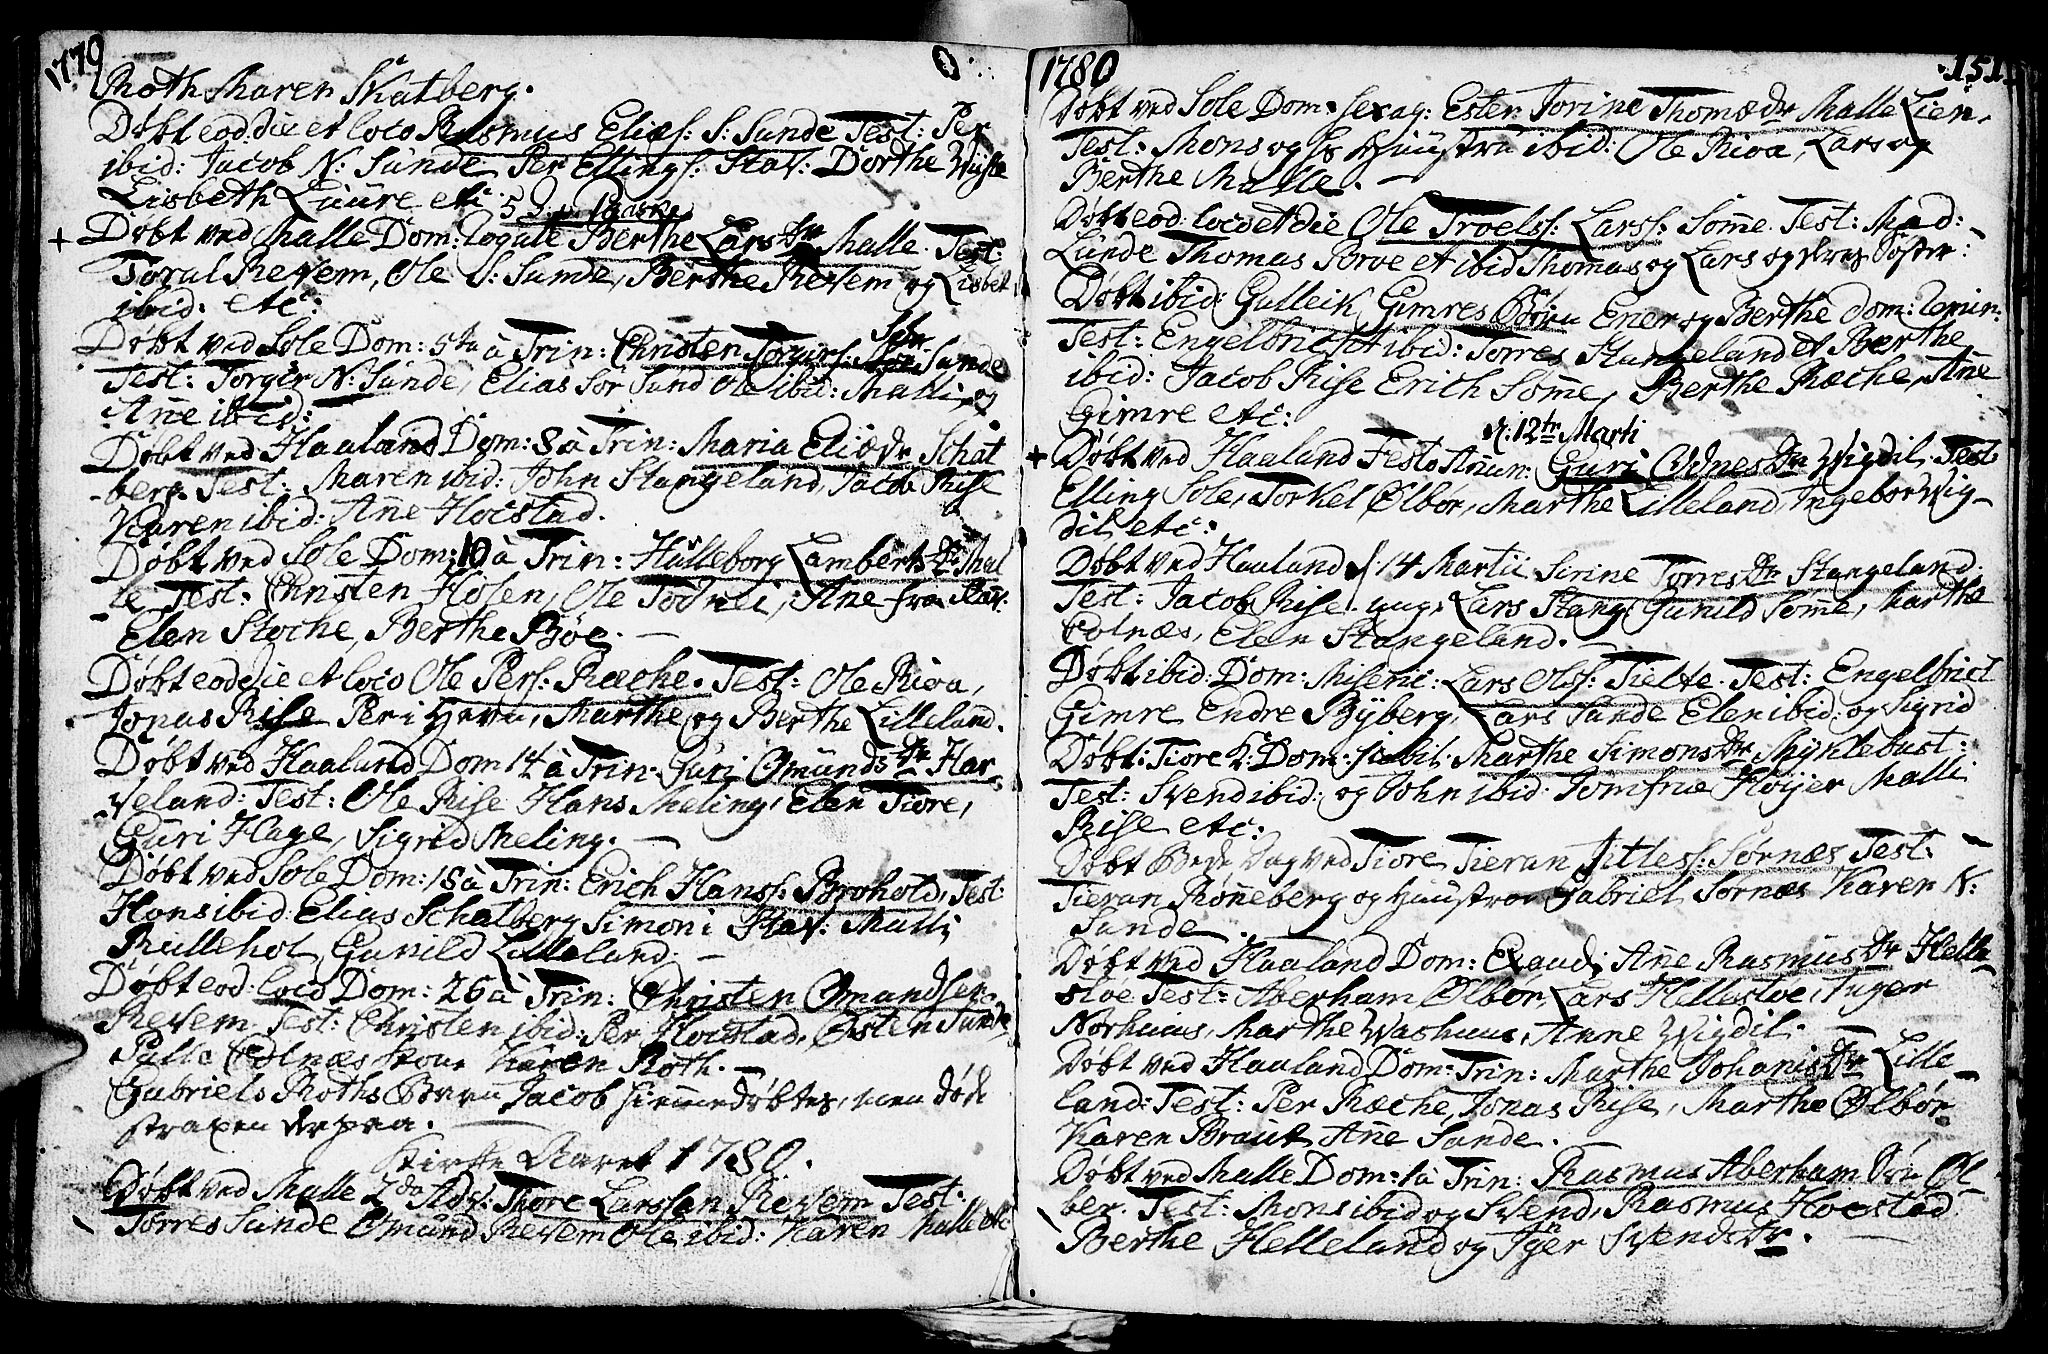 1779
Roth Maren Skatberg.
Døbt eod: die et loco Rasmus Elias: S: Sunde Test: Per
ibid: Jacob N: Sunde Per Ellings: Stav: Dorthe
Lisbeth Luure etc:
+ Døbt ved Malle Dom: Rogate Berthe Lars Dr Malle. Test:
Toral Revem, Ole S: Sunde, Berthe Revem og Lisbet
ibid: etc:
Døbt ved Sole Dom: 5ta à Trin: Christen Torgers: Sunde
Test: Torger N: Sunde, Elias Sør Sund Ole ibid: Malli og
Ane ibid:
Døbt ved Haaland Dom: 8 à Trin: Maria Eliæ Dr Schat
berg. Test: Maren ibid: John Stangeland, Jacob Rise
Karen ibid: Ane Hocstad.
Døbt ved Sole Dom: 10 à Trin: Hulleborg Lamberts Dr Mal
le Test: Christen Hosen, Ole Todnei, Ane fra Stav:
Elen Stoche, Berthe Bøe. —
Døbt eod die et loco Ole Pers: Ræche. Test: Ole Riva,
Jonas Rise Per i Marthe og Berthe Lilleland.
Døbt ved Haaland Dom 14 à Trin: Guri Omunds Dr Har
veland: Test: Ole Rise Hans Meling, Elen Tiore,
Guri Hage, Sigrid Meling. —
Døbt ved Sole Dom: 18 à Trin: Erich Hanss: Brohold, Test:
Hans ibid: Elias Schatberg Simon i Stav: Malli
Rullehol, Gunild Lilleland. —
Døbt eod: loco Dom: 26 à Trin: Christen Omundsen
Revem Test: Christen ibid: Per Hocstad, Østen Sunde,
Palle Karen Roth. —
Gabriels Roths Barn Jacob hiemmedøbtes, men døde
strapen derpaa. —
Kirke Aaret 1780.
Døbt ved Malle 2da Adv: Thore Larssen Revem Test:
Torres Sunde Omund Revem Ole ibid: Karen Malle etc
1780
151
Døbt ved Sole Dom: Sexag: Ester Jorine Thomæ Dr Malle Lien.
Test: Mons og Hustru ibid: Ole Riva, Lars og
Berthe Malle. —
Døbt eod: loco et die Ole Troelss: Larss: Sømme. Test: Mad:
Lunde Thomas Sorve et ibid Thomas og Lars og Søster:
Døbt ibid: Gulleik Gimres Børn Ener og Berthe Dom:
Test: Engelbricht ibid: Torres Stangeland et Berthe
ibid: Jacob Rise Erich Sømme, Berthe Ræche, Ane
Gimre etc:
d: 12te Marti
+ Døbt ved Haaland Festo Anun: Guri Odnes Dr Wigdil Test:
Elling Sole, Torkel Ølbør, Marthe Lilleland, Ingebor Wig-
dil etc:
Døbt ved Haaland d 14 Martii Sirine Torres Dr Stangeland:
Test: Jacob Rise ung, Lars Stang Gunild Sømme, Marthe
Volnæs, Elen Stangeland. —
Døbt ibid: Dom: Miseric: Lars Olss: Tielte. Test: Engelbrict
Gimre Endre Byberg, Lars Sunde Elen ibid: og Sigrid
Døbt: Tiore K: Dom: Jubil: Marthe Simons Dr Myklebust:
Test: Svend ibid: og John ibid: Jomfrue Høyer Malli
Rise etc:
Døbt Bede Dag ved Tiore Tieran Jitless: Sørnæs Test:
Tieran Rønneberg og Hustroe Gabriel Sørnæs Karen N:
Sunde. —
Døbt ved Haaland Dom: Exaudi Ane Rasmus Dr Helle-
stoe Test: Aberham Ølbør, Lars Hellestoe, Inger
Norhuus, Marthe Washuus, Anne Wigdil.
Døbt ved Haaland Dom: Trin: Marthe Johanis Dr Lille
land: Test: Per Ræche, Jonas Rise, Marthe Ølbør
Karen Braut Ane Sunde. —
Døbt ved Malle Dom: 1 à Trin: Rasmus Aberham Søn Øl-
ber. Test: Mons ibid og Svend, Rasmus Hocstad
Berthe Helleland og Svends Dr. —